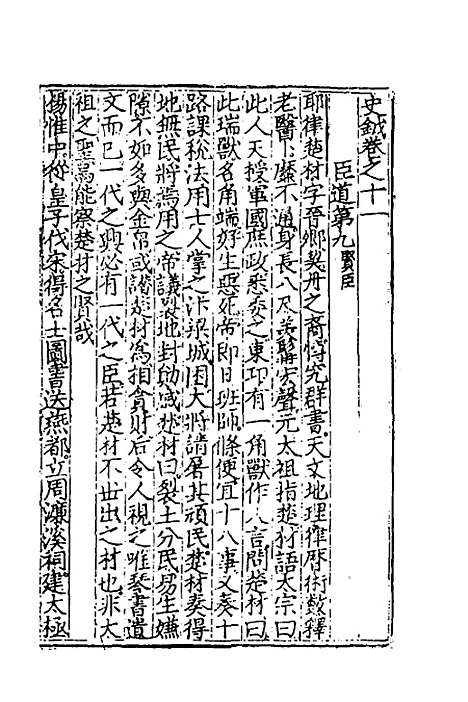 史鉞卷之十一
臣道第九賢臣
耶律楚材字晉卿契丹之裔博究群書天文地理律曆術數釋
老醫卜靡不通身長八尺美髯宏聲元太祖指楚材語太宗曰
此人天授軍國庶政悉委之東印有一角獸作人言問楚材曰
此瑞獸名角端好生惡死帝即日班師條便宜十八事又奏十
路課稅法用士人掌之汴梁城困大將請屠其頑民楚材奏得
地無民將焉用之帝議裂地封勛戚楚材曰裂土分民易生嫌
隙不如多與金帛或譖楚材為相貪財后令人視之唯琴書遺
文而已一代之興必有一代之臣若楚材不世出之材也非太
祖之聖焉能察楚材之賢哉
楊惟中從皇子伐宋得名士圖書送燕都立周濂溪祠建太極